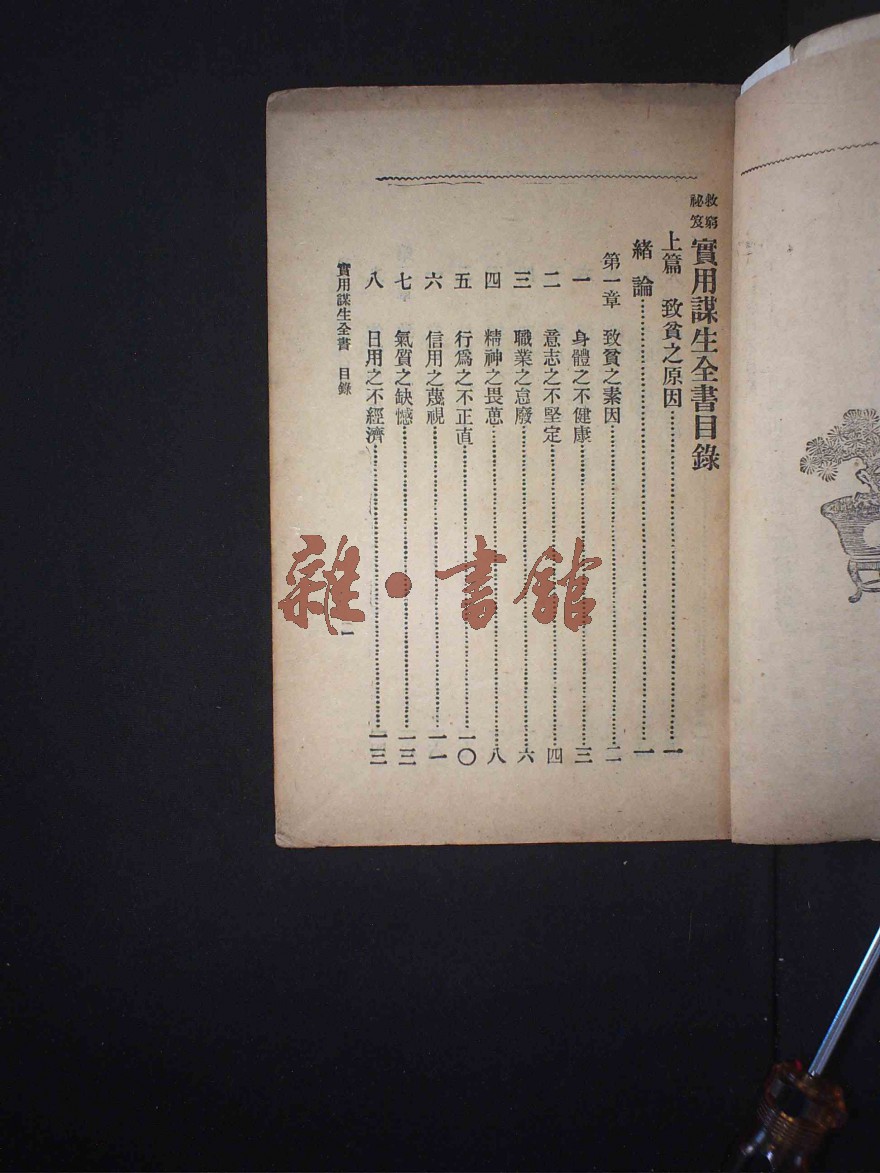 救窮祕笈 實用謀生全書目錄
上篇 致貧之原因……一
緒論……一
第一章 致貧之素因……二
一 身體之不健康……三
二 意志之不堅定……四
三 職業之怠廢……六
四 精神之畏葸……八
五 行爲之不正直……一〇
六 信用之蔑視……一一
七 氣質之缺憾……一三
八 日用之不經濟……一三
實用謀生全書 目錄
一
雜·書館